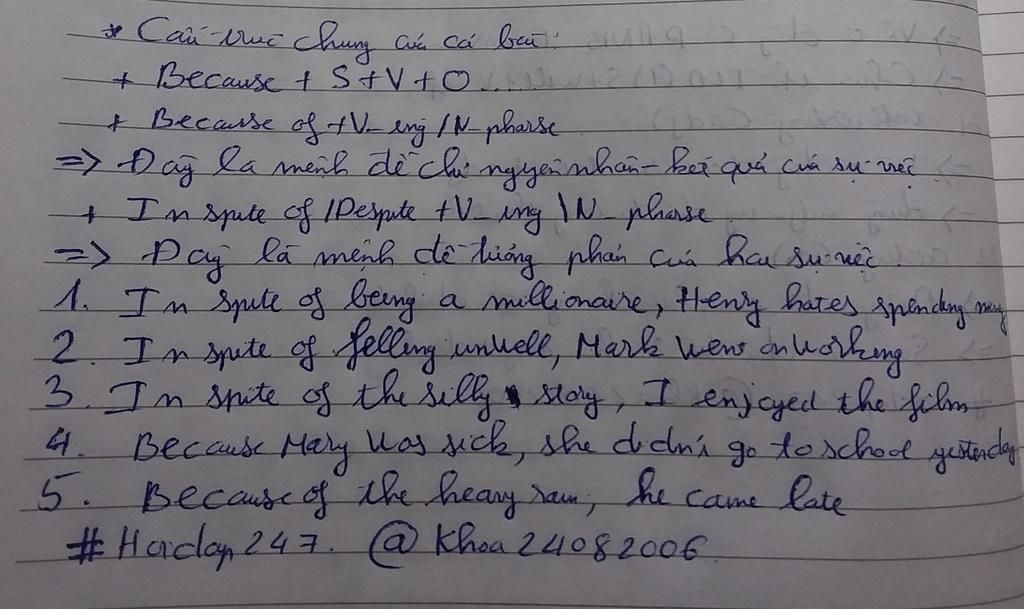 * Cấu trúc chung của cả bài:
+ Because + S+V+O.....
+ Because of +V_ing /N_pharse
=> Đây là mệnh đề chỉ nguyên nhân-kết quả của sự việc
+ In spite of /Despite +V_ing \N_pharse
=> Đây là mệnh đề tương phản của hai sự việc.
1. In spite of being a millionaire, Henry hates spending
2. In spite of felling unwell, Mark went on working
3. In spite of the silly story, I enjoyed the film
4. Because Mary was sick, she didn't go to school yesterday
5. Because of the heavy rain, he came late
#Hoidap247. @Khoa24082006